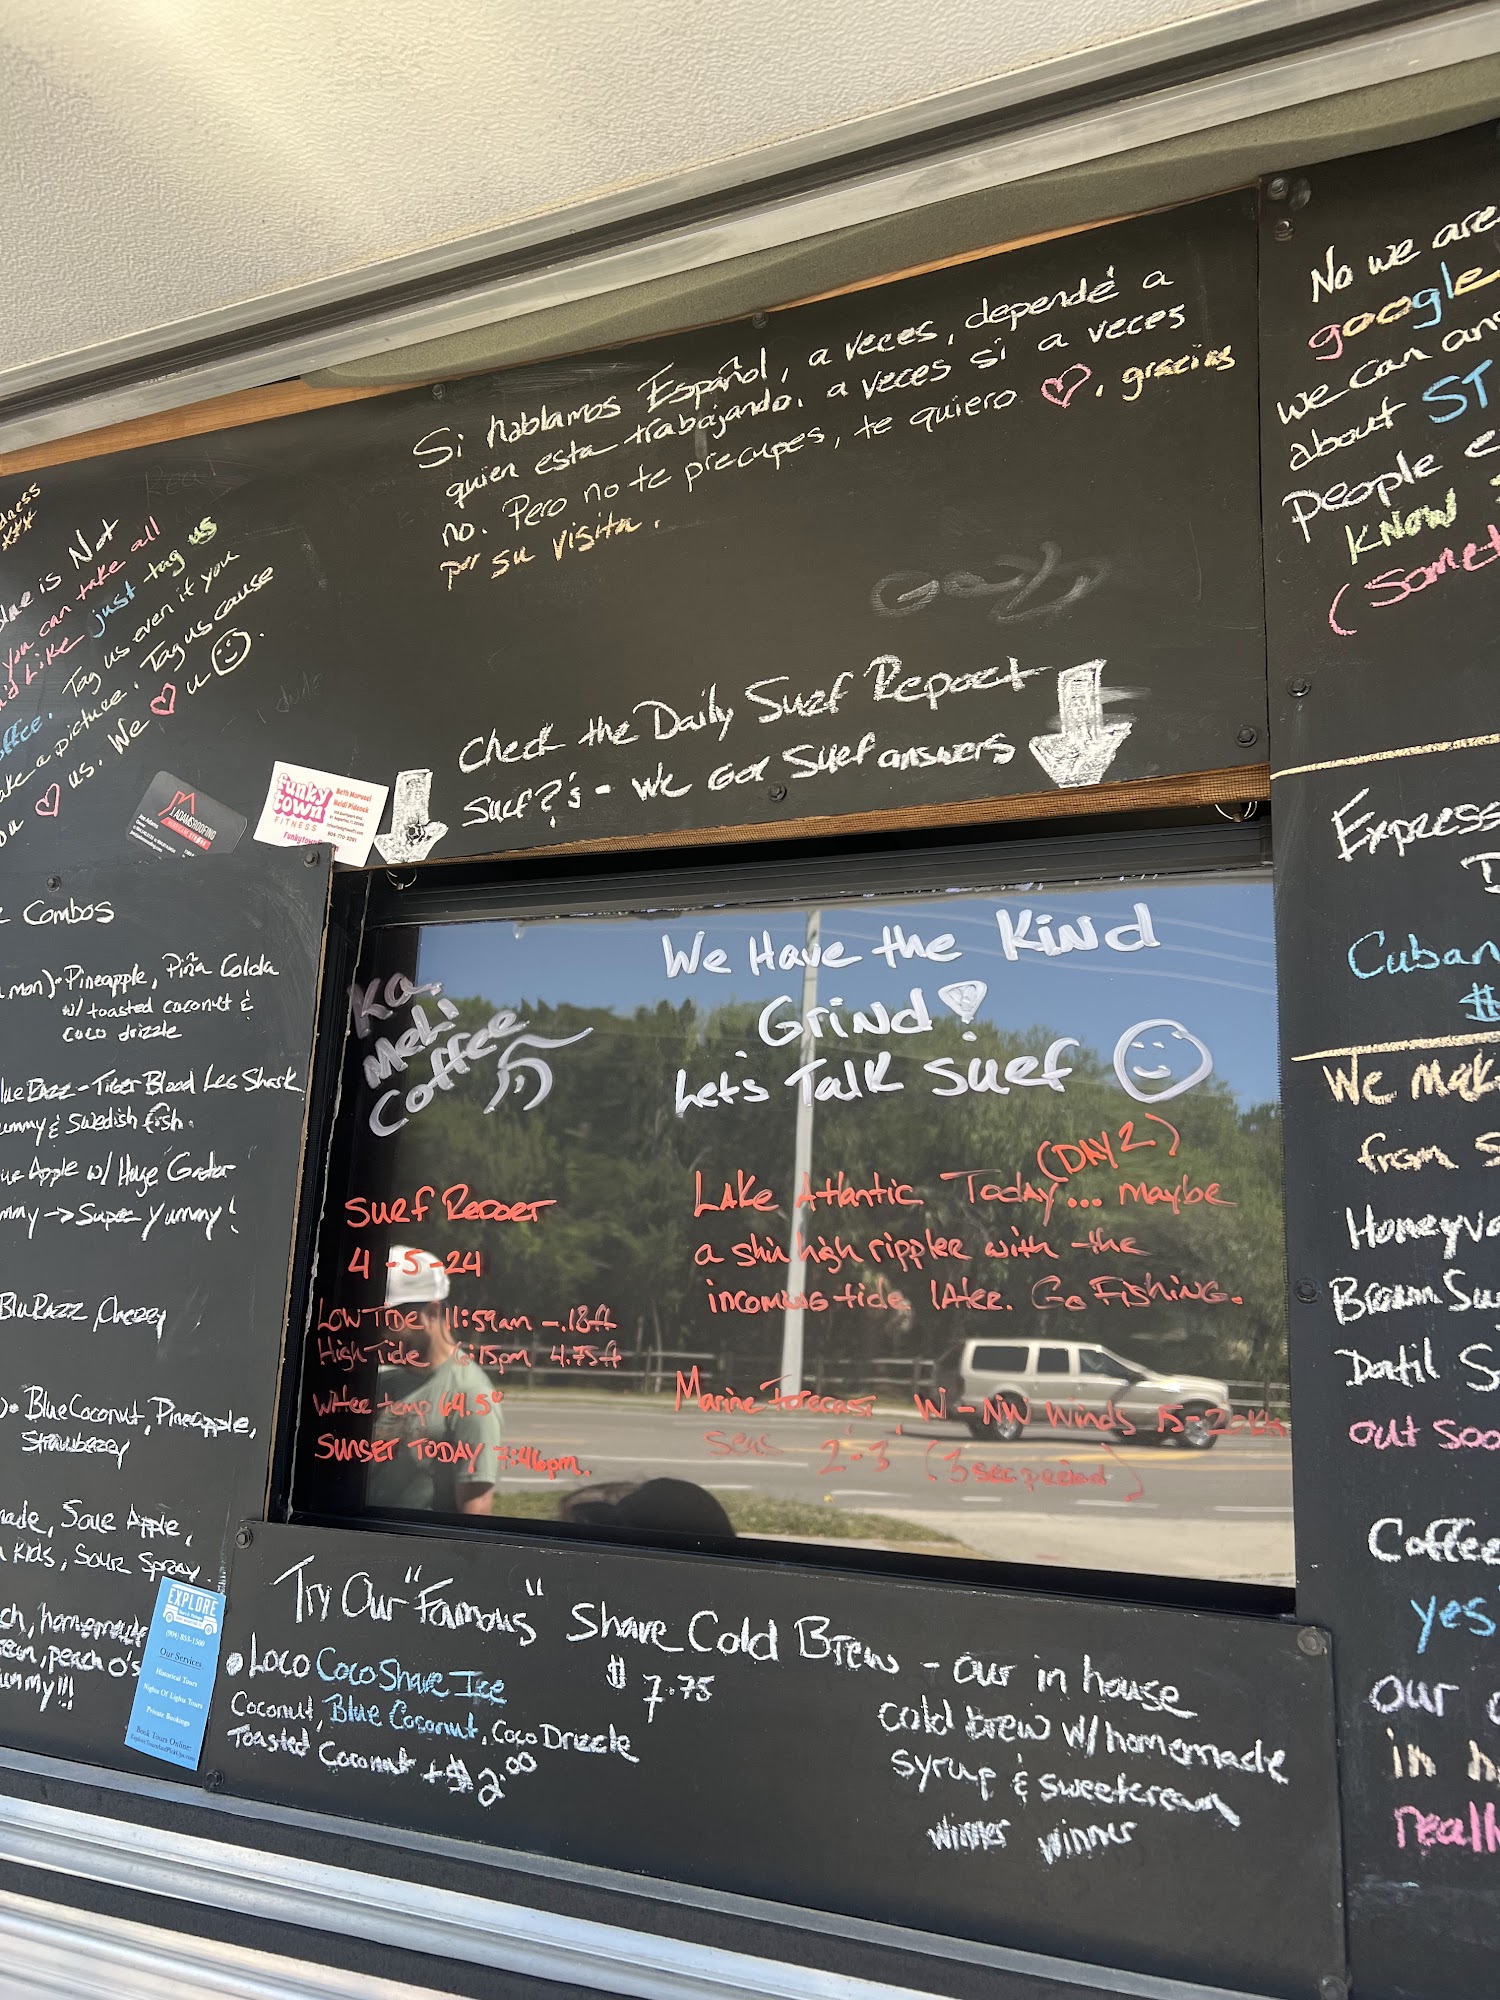 Si hablamos Español, a veces, dependé a
quien esta trabajando. a veces si a veces
no. Pero no te precupes, te quiero ♡, gracias
por su visita.
Check the Daily Surf Report
Surf?'s - We Got Surf answers
is Not
you can take all
just tag us
Tag us even if you
take a picture. Tag us cause
you ♡ us. We ♡ u ☺.
ADAMS ROOFING
funky
town
FITNESS
Combos
mon) - Pineapple, Piña Colda
w/ toasted coconut &
coco drizzle
Blue Razz - Tiger Blood Les Shark
& Swedish fish.
Apple w/ Huge Gator
→ Super Yummy!
Blu Razz Cherry
Blue Coconut, Pineapple,
Strawberry
Sour Apple,
Kids, Sour Spray
EXPLORE
(904) 853-1500
Our Services
Historical Tours
Nights Of Lights Tours
Private Bookings
Book Tours Online:
Ka
Meh
Coffee
We Have the Kind
Grind!
Let's Talk Surf ☺
Surf Report
4-5-24
Low Tide 11:59am -.18ft
High Tide 6:15pm 4.75ft
Water temp 64.5°
Sunset Today 7:46pm.
(DAY 2)
Lake Atlantic Today... maybe
a shin high rippler with the
incoming tide later. Go Fishing.
Marine Forecast W - NW Winds 15-20kts
Seas 2-3 (3 sec period)
Try Our "Famous" Shave Cold Brew - our in house
cold brew w/ homemade
syrup & sweetcream
winner winner
$7.75
• Loco Coco Shave Ice
Coconut, Blue Coconut, Coco Drizzle
Toasted Coconut + $2.00
No we are
google
we can
about ST
People
Know
Express
Cuban
$
We Mak
from S
Honey
Brown Su
Datil S
out soo
Coffee
yes
our
in h
really